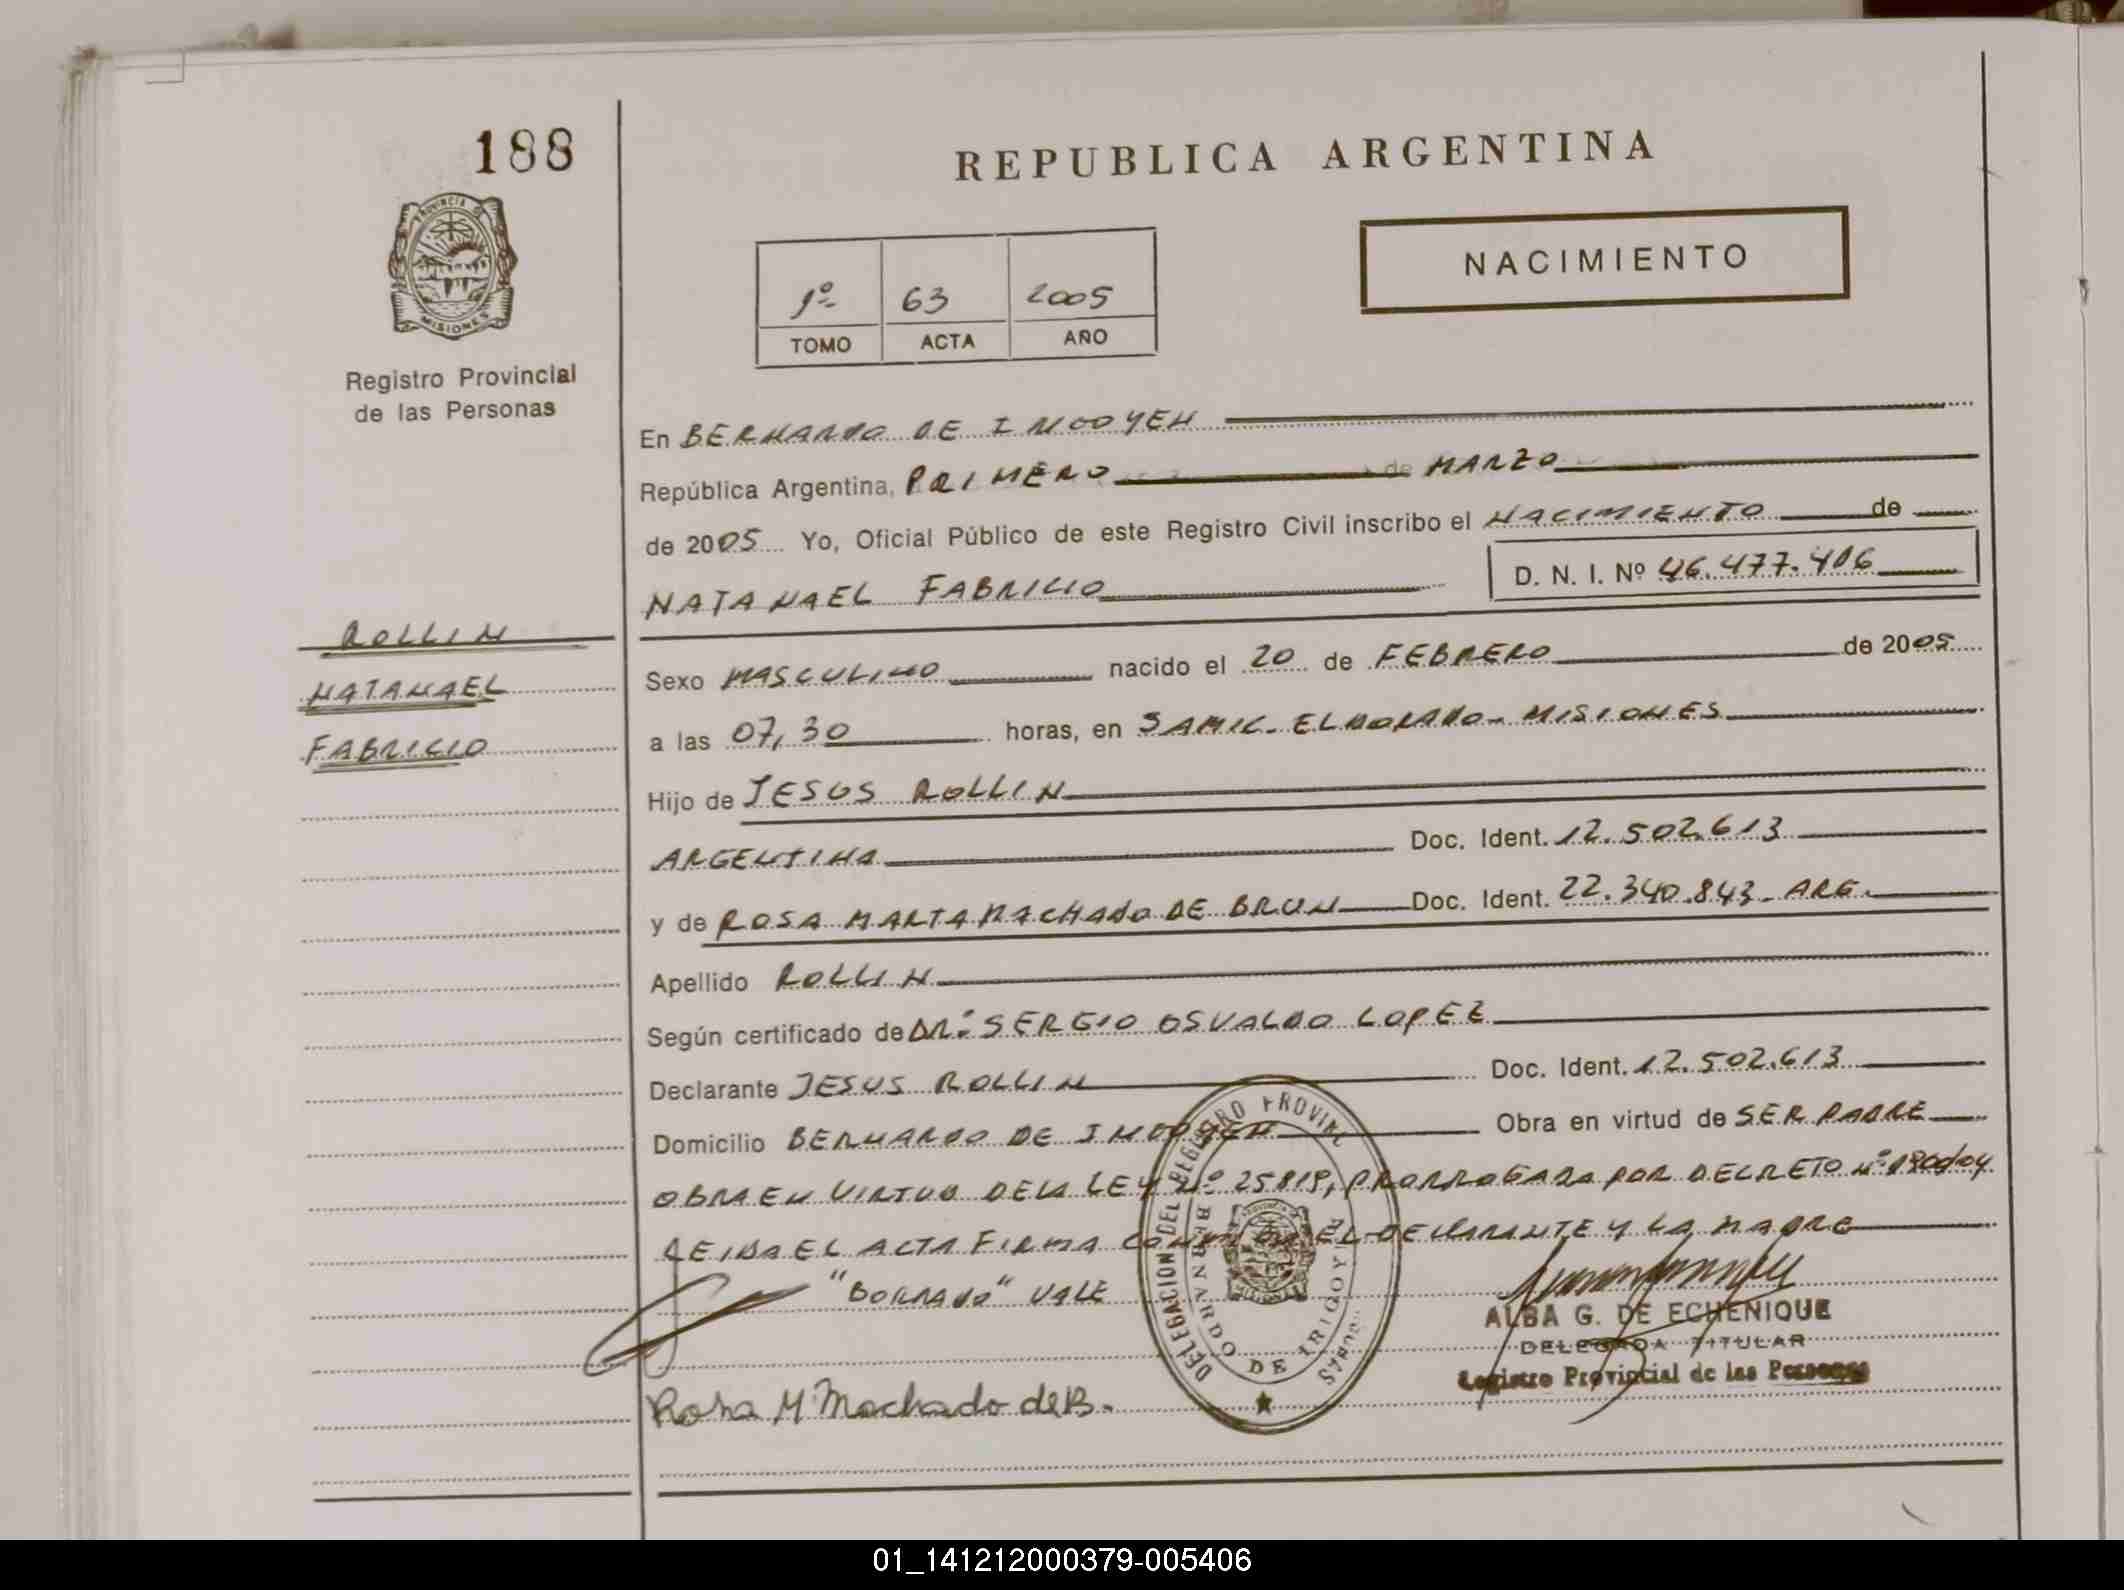 188
REPUBLICA ARGENTINA
NACIMIENTO
PROVINCIA DE
MISIONES
1º 63 2005
TOMO ACTA AÑO
Registro Provincial
de las Personas
En BERNARDO DE IRIGOYEN
República Argentina, PRIMERO de MARZO
de 2005 Yo, Oficial Público de este Registro Civil inscribo el NACIMIENTO de
NATANAEL FABRICIO D. N. I. Nº 46.477.406
ROLLIN
NATANAEL
FABRICIO
Sexo MASCULINO nacido el 20 de FEBRERO de 2005
a las 07,30 horas, en SAMIC - ELDORADO - MISIONES
Hijo de JESUS ROLLIN
ARGENTINA Doc. Ident. 12.502.613
y de ROSA MARTA MACHADO DE BRUN Doc. Ident. 22.340.843 - ARG.
Apellido ROLLIN
Según certificado de DR. SERGIO OSVALDO LOPEZ
Declarante JESUS ROLLIN Doc. Ident. 12.502.613
Domicilio BERNARDO DE IRIGOYEN Obra en virtud de SER PADRE
OBRA EN VIRTUD DE LA LEY Nº 25819, PRORROGADA POR DECRETO Nº
LEIDA EL ACTA FIRMA EL DECLARANTE Y LA MADRE
"BORRADO" VALE
DELEGACION DEL REGISTRO PROVINCIAL
BERNARDO DE IRIGOYEN
ALBA G. DE ECHENIQUE
DELEGADA TITULAR
Registro Provincial de las Personas
Rosa M. Machado de B.
01_141212000379-005406